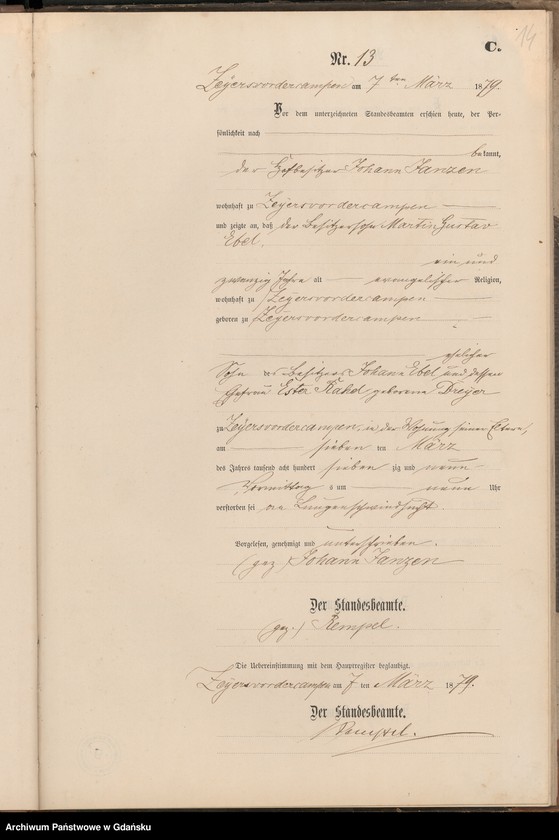 14
C.
Nr. 13
Zeÿersvordercampen am 7 ten März 1879.
Vor dem unterzeichneten Standesbeamten erschien heute, der Per-
sönlichkeit nach
bekannt,
der Hofbesitzer Johann Janzen
wohnhaft zu Zeÿersvordercampen
und zeigte an, daß der Besitzersohn Martin Gustav
Ebel,
ein und
zwanzig Jahre alt evangelischer Religion,
wohnhaft zu Zeÿersvordercampen
geboren zu Zeÿersvordercampen
ehelicher
Sohn des Besitzers Johann Ebel und dessen
Ehefrau Ester geborene Dreÿer
zu Zeÿersvordercampen, in der Wohnung seiner Eltern,
am sieben ten März
des Jahres tausend acht hundert sieben zig und neun
Vormittag s um neun Uhr
verstorben sei an Lungenschwindsucht.
Vorgelesen, genehmigt und unterschrieben.
(gez.) Johann Janzen
Der Standesbeamte.
(gez.) Rempel.
Die Uebereinstimmung mit dem Hauptregister beglaubigt.
Zeÿersvordercampen am 7 ten März 1879.
Der Standesbeamte.
Rempel.
Archiwum Państwowe w Gdańsku